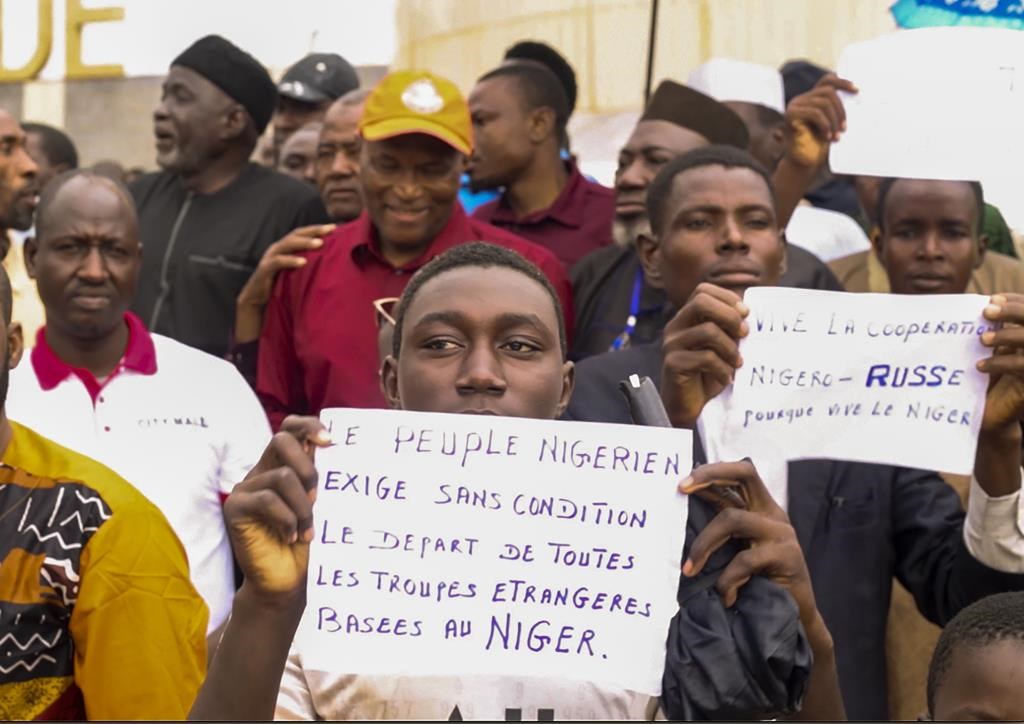 DE
CITY MALL
LE PEUPLE NIGERIEN
EXIGE SANS CONDITION
LE DEPART DE TOUTES
LES TROUPES ETRANGERES
BASEES AU NIGER.
VIVE LA COOPERATION
NIGERO - RUSSE
POURQUE VIVE LE NIGER